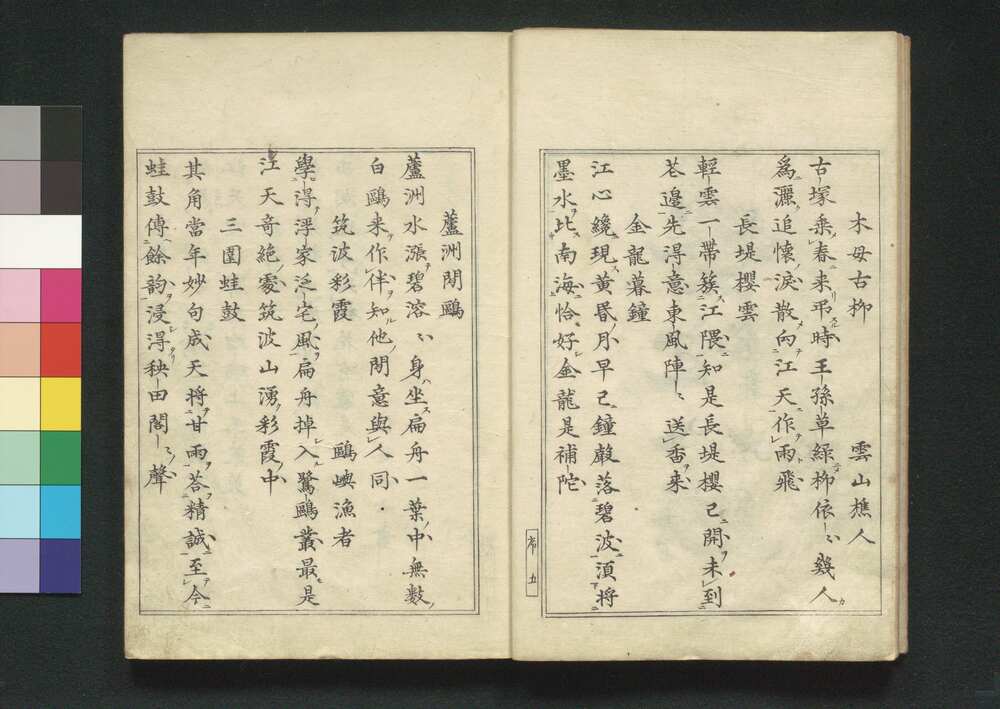 木母古柳　雲山樵人
古塚乘春来弔時王孫草緑柳依〻幾人
爲灑追懷涙散向江天作雨飛
長堤櫻雲
輕雲一帶簇江隈知是長堤櫻已開未到
花邊先得意東風陣〻送香来
金龍暮鐘
江心纔現黄昏月早已鐘聲落碧波須将
墨水比南海恰好金龍是補陀
蘆洲閒鷗
蘆洲水漲碧溶〻身坐扁舟一葉中無數
白鷗来作伴知他閒意與人同
筑波彩霞　鷗嶼漁者
學得浮家泛宅風扁舟掉入鷺鷗叢最是
江天奇絶處筑波山湧彩霞中
三圍蛙鼓
其角當年妙句成天将甘雨荅精誠至今
蛙鼓傳餘韵浸得秧田閣〻聲